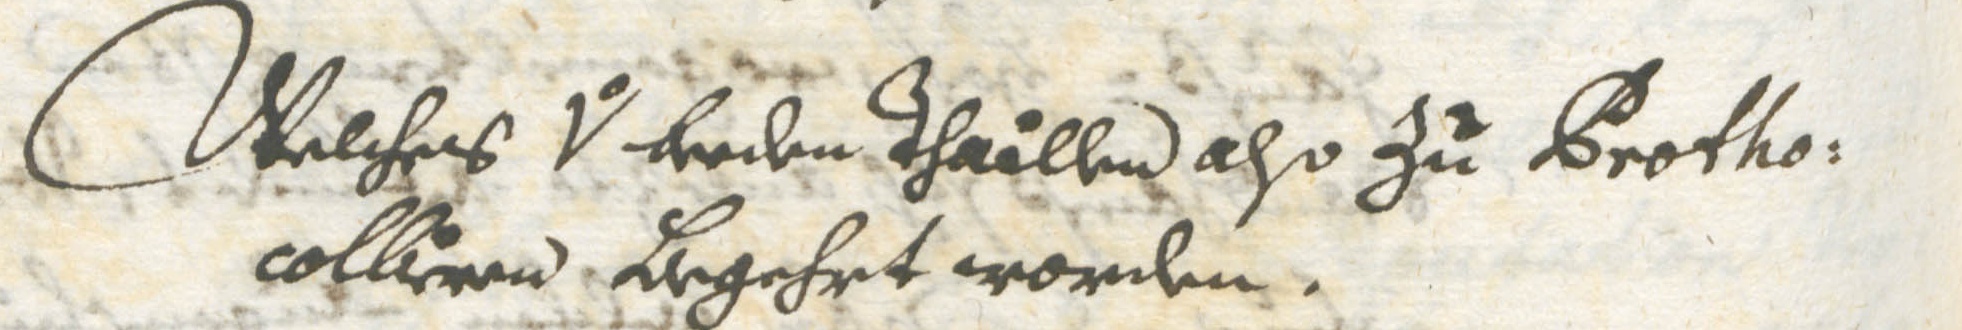 Welches von beeden Thaillen also zu Protho:
colliren begehrt worden.